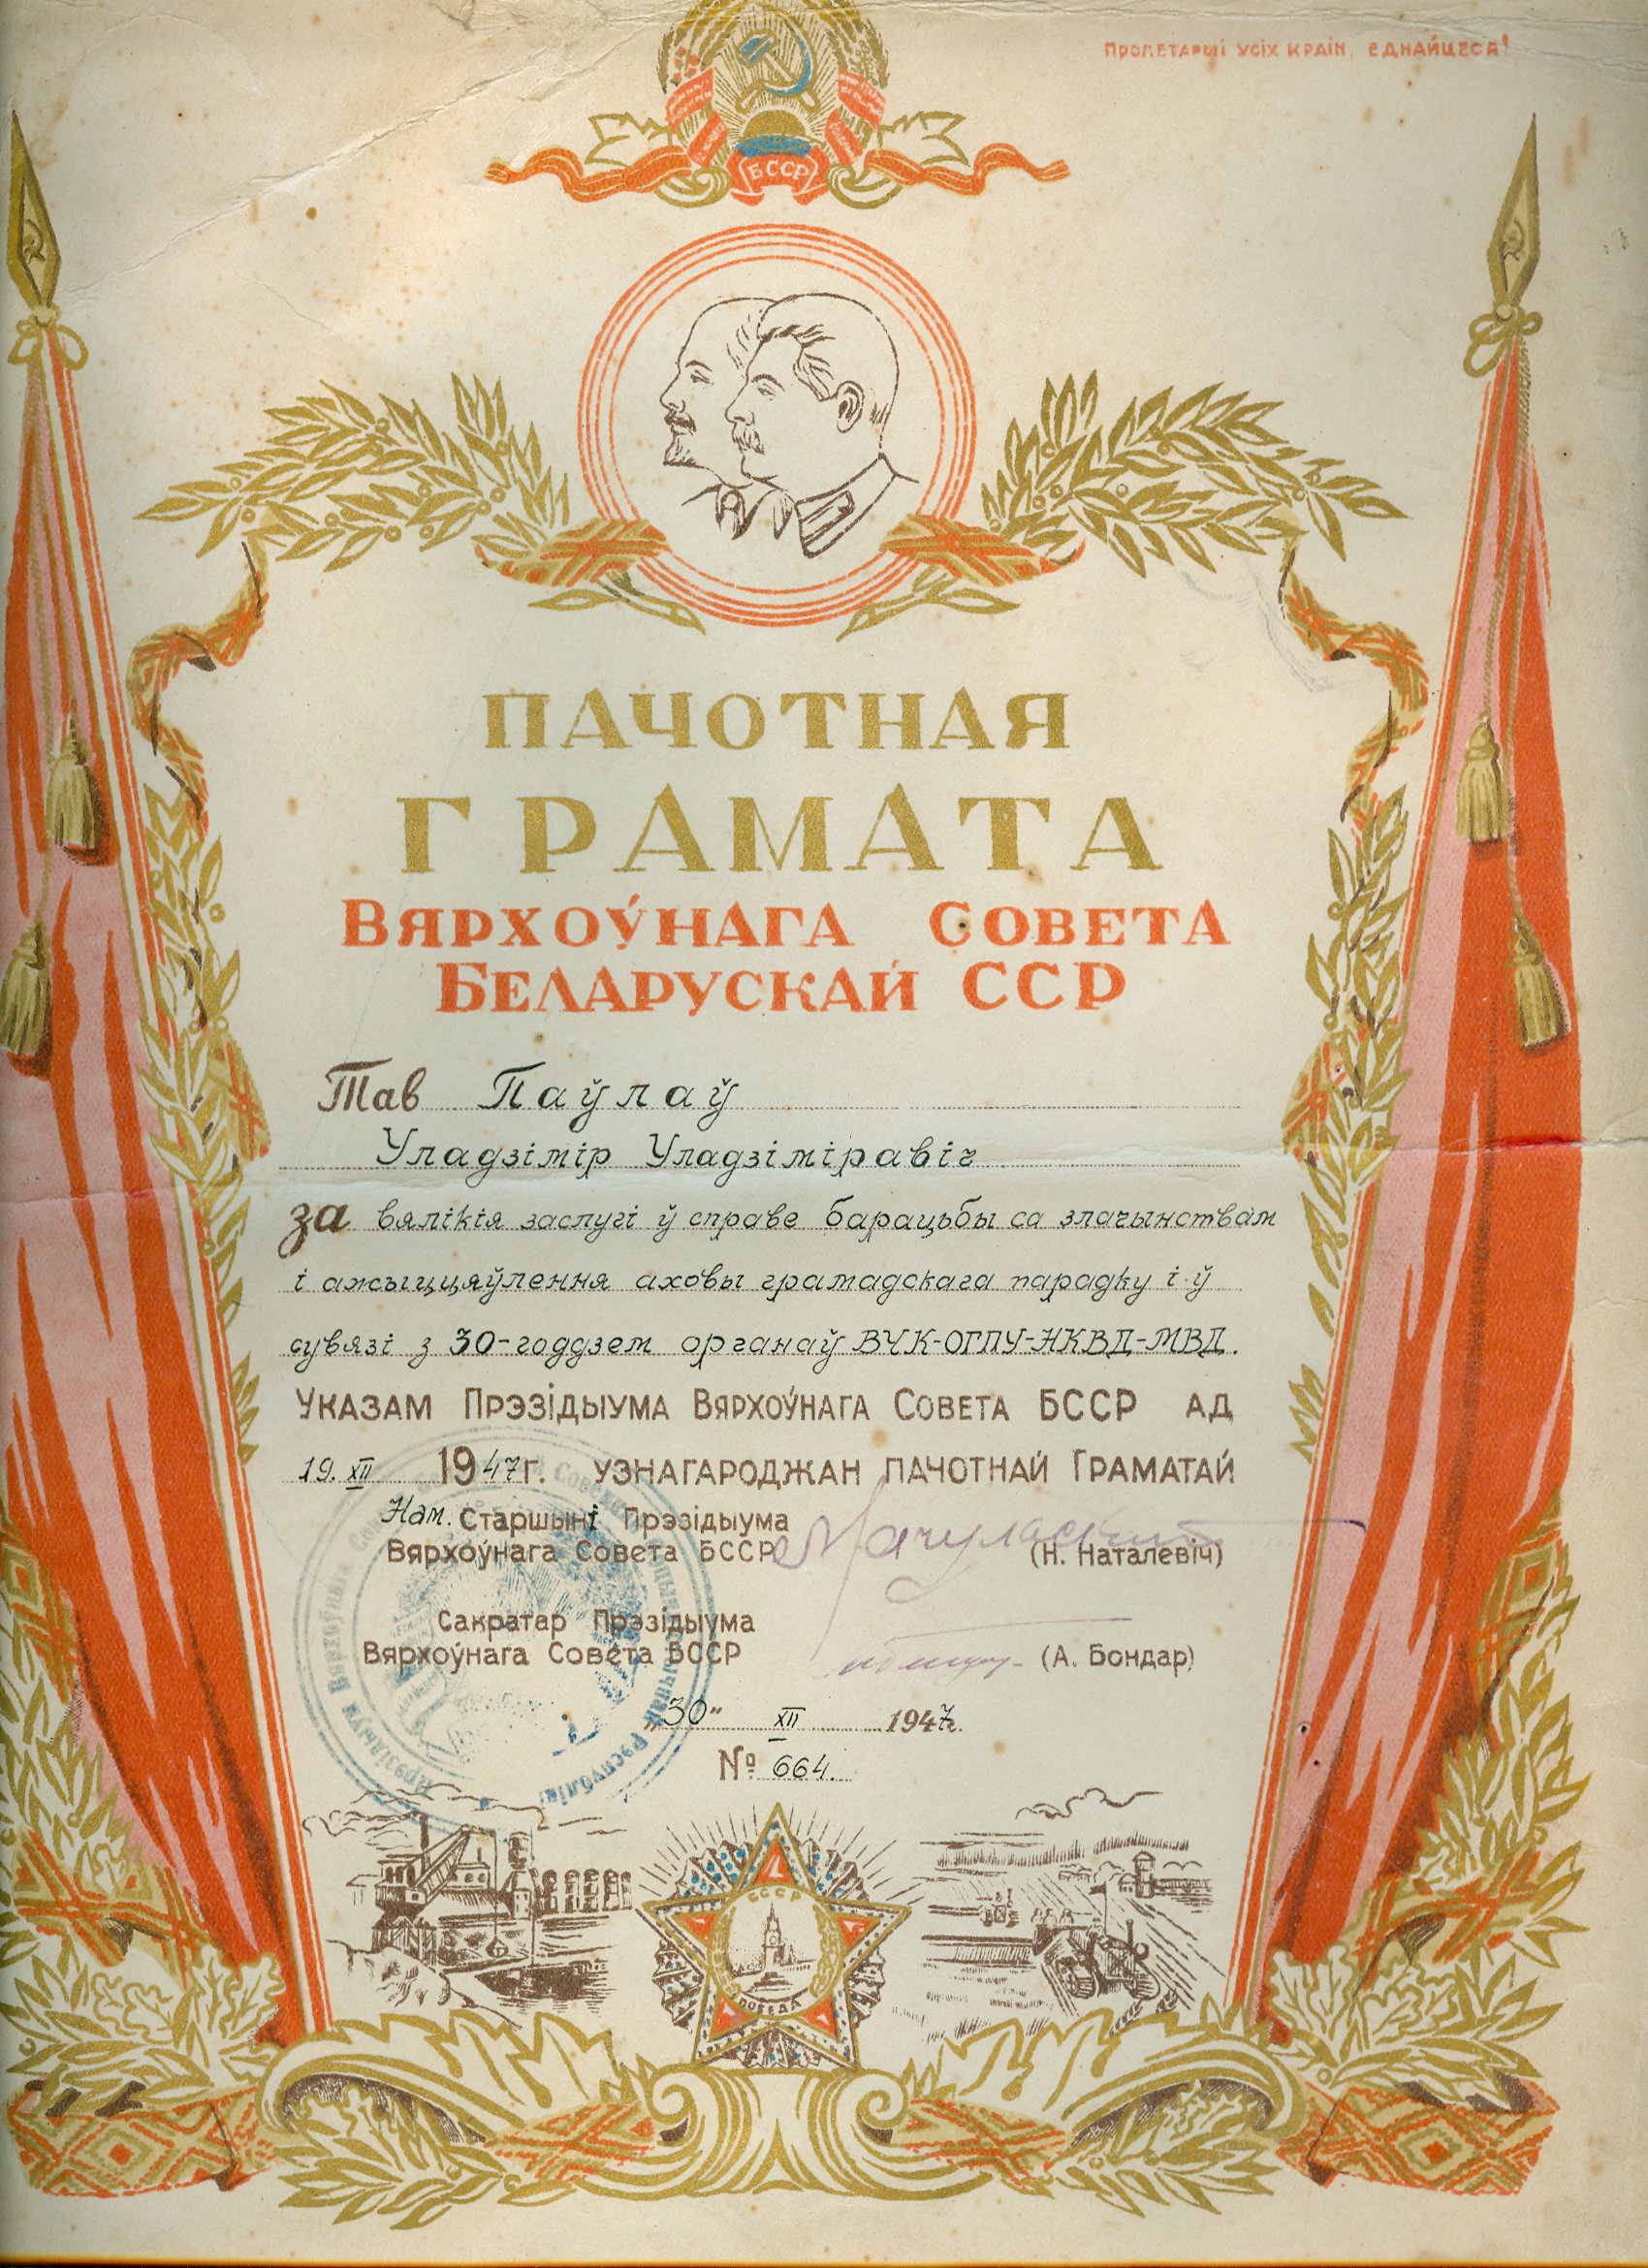 Пролетарыі усіх краін, еднайцеся!
БССР
ПАЧОТНАЯ
ГРАМАТА
Вярхоўнага Совета
Беларускай ССР
Тав Паўлаў
Уладзімір Уладзіміравіч
за вялікія заслугі ў справе барацьбы са злачынствам
і ажыццяўлення аховы грамадскага парадку і ў
сувязі з 30-годдзем органаў ВЧК-ОГПУ-НКВД-МВД.
Указам Прэзідыума Вярхоўнага Совета БССР ад
19. XII 1947г. узнагароджан пачотнай Граматай
Нам. Старшыні Прэзідыума
Вярхоўнага Совета БССР (Н. Наталевіч)
Сакратар Прэзідыума
Вярхоўнага Совета БССР (А. Бондар)
"30" XII 1947г.
№ 664.
СССР
ПОБЕДА